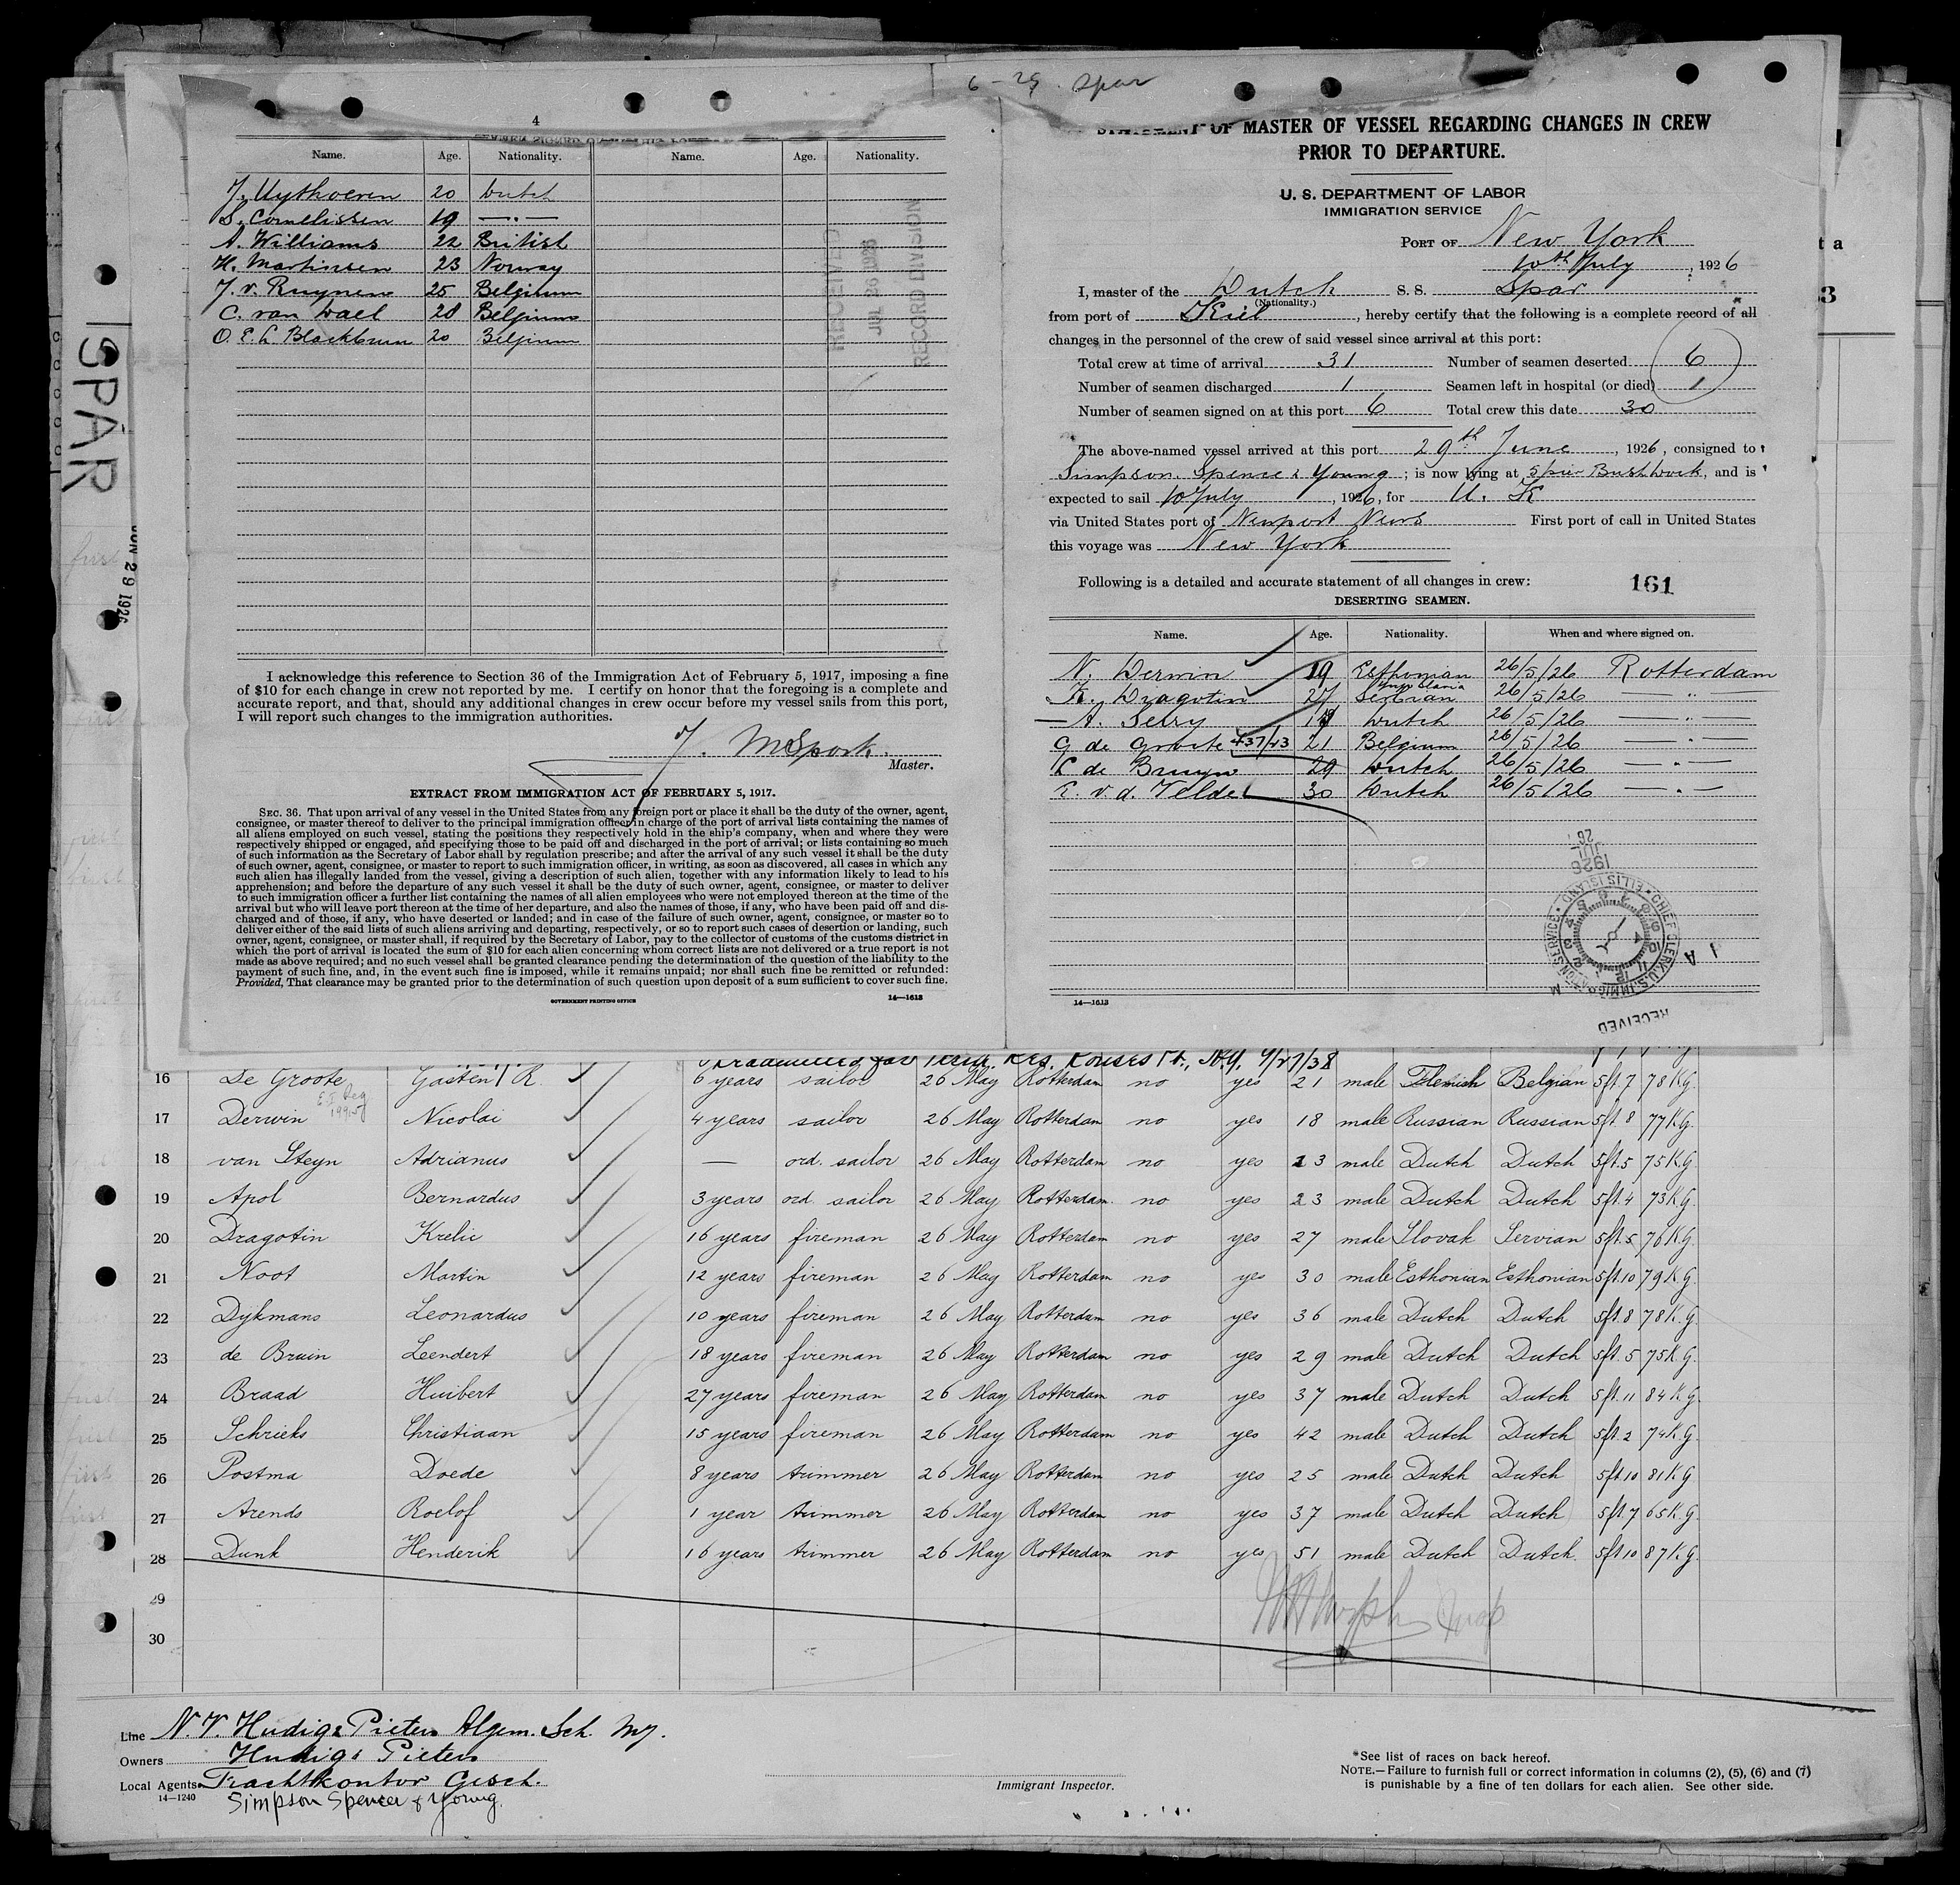 6-29. Spar
4
Name. Age. Nationality. Name. Age. Nationality.
J. Uythoeven 20 Dutch
S. Cornelissen 19 — " —
A. Williams 22 British
H. Martinsen 23 Norway
J. v. Ruynen 25 Belgium
C. van Dael 28 Belgium
O. E. L. Blackburn 20 Belgium
RECEIVED
RECORD DIVISION
I acknowledge this reference to Section 36 of the Immigration Act of February 5, 1917, imposing a fine
of $10 for each change in crew not reported by me. I certify on honor that the foregoing is a complete and
accurate report, and that, should any additional changes in crew occur before my vessel sails from this port,
I will report such changes to the immigration authorities.
Master.
EXTRACT FROM IMMIGRATION ACT OF FEBRUARY 5, 1917.
SEC. 36. That upon arrival of any vessel in the United States from any foreign port or place it shall be the duty of the owner, agent,
consignee, or master thereof to deliver to the principal immigration officer in charge of the port of arrival lists containing the names of
all aliens employed on such vessel, stating the positions they respectively hold in the ship's company, when and where they were
respectively shipped or engaged, and specifying those to be paid off and discharged in the port of arrival; or lists containing so much
of such information as the Secretary of Labor shall by regulation prescribe; and after the arrival of any such vessel it shall be the duty
of such owner, agent, consignee, or master to report to such immigration officer, in writing, as soon as discovered, all cases in which any
such alien has illegally landed from the vessel, giving a description of such alien, together with any information likely to lead to his
apprehension; and before the departure of any such vessel it shall be the duty of such owner, agent, consignee, or master to deliver
to such immigration officer a further list containing the names of all alien employees who were not employed thereon at the time of the
arrival but who will leave port thereon at the time of her departure, and also the names of those, if any, who have been paid off and dis-
charged and of those, if any, who have deserted or landed; and in case of the failure of such owner, agent, consignee, or master so to
deliver either of the said lists of such aliens arriving and departing, respectively, or so to report such cases of desertion or landing, such
owner, agent, consignee, or master shall, if required by the Secretary of Labor, pay to the collector of customs of the customs district in
which the port of arrival is located the sum of $10 for each alien concerning whom correct lists are not delivered or a true report is not
made as above required; and no such vessel shall be granted clearance pending the determination of the question of the liability to the
payment of such fine, and, in the event such fine is imposed, while it remains unpaid; nor shall such fine be remitted or refunded:
Provided, That clearance may be granted prior to the determination of such question upon deposit of a sum sufficient to cover such fine.
GOVERNMENT PRINTING OFFICE 14—1613
STATEMENT OF MASTER OF VESSEL REGARDING CHANGES IN CREW
PRIOR TO DEPARTURE.
U. S. DEPARTMENT OF LABOR
IMMIGRATION SERVICE
PORT OF New York
10th July, 1926
I, master of the Dutch S. S. Spar
(Nationality.)
from port of Kiel, hereby certify that the following is a complete record of all
changes in the personnel of the crew of said vessel since arrival at this port:
Total crew at time of arrival 31 Number of seamen deserted 6
Number of seamen discharged 1 Seamen left in hospital (or died) 1
Number of seamen signed on at this port 6 Total crew this date 30
The above-named vessel arrived at this port 29th June, 1926, consigned to
Simpson Spence & Young; is now lying at 5 pier Bush Dock, and is
expected to sail 10 July, 1926, for U. K
via United States port of Newport News First port of call in United States
this voyage was New York
Following is a detailed and accurate statement of all changes in crew: 161
DESERTING SEAMEN.
Name. Age. Nationality. When and where signed on.
N. Derwin 19 Esthonian 26/5/26 Rotterdam
K. Dragotin 27 Serbian 26/5/26 — " —
A. Selry Dutch 26/5/26 — " —
G de Groote 437/23 21 Belgium 26/5/26 — " —
L de Bruyn 29 Dutch 26/5/26 — " —
E. v. d. Velde 30 Dutch 26/5/26 — " —
ELLIS ISLAND CHIEF CLERK
RECEIVED
14—1613
SPAR
JUN 29 1926
16 De Groote Gasten R. 6 years sailor 26 May Rotterdam no yes 21 male Flemish Belgian 5ft 7 78 K.G.
17 Derwin Nicolai 4 years sailor 26 May Rotterdam no yes 18 male Russian Russian 5ft 8 77 K.G.
18 van Steyn Adrianus — ord. sailor 26 May Rotterdam no yes 23 male Dutch Dutch 5ft. 5 75 K.G.
19 Apol Bernardus 3 years ord. sailor 26 May Rotterdam no yes 23 male Dutch Dutch 5ft. 4 73 K.G.
20 Dragotin Krelic 16 years fireman 26 May Rotterdam no yes 27 male Slovak Servian 5ft. 5 76 K.G.
21 Noot Martin 12 years fireman 26 May Rotterdam no yes 30 male Esthonian Esthonian 5ft. 10 79 K.G.
22 Dykmans Leonardus 10 years fireman 26 May Rotterdam no yes 36 male Dutch Dutch 5ft. 8 78 K.G.
23 de Bruin Leendert 18 years fireman 26 May Rotterdam no yes 29 male Dutch Dutch 5ft. 5 75 K.G.
24 Braad Huibert 27 years fireman 26 May Rotterdam no yes 37 male Dutch Dutch 5ft. 11 84 K.G.
25 Schrieks Christiaan 15 years fireman 26 May Rotterdam no yes 42 male Dutch Dutch 5ft. 2 74 K.G.
26 Postma Doede 8 years trimmer 26 May Rotterdam no yes 25 male Dutch Dutch 5ft. 10 81 K.G.
27 Arends Roelof 1 year trimmer 26 May Rotterdam no yes 37 male Dutch Dutch 5ft. 7 65 K.G.
28 Dunk Henderik 16 years trimmer 26 May Rotterdam no yes 51 male Dutch Dutch 5ft 10 87 K.G.
29
30
Line N.V. Hudig & Pieters Algem. Sch. My.
Owners Hudig & Pieters
Local Agents Frachtkontor Gesch.
14—1240
Simpson Spencer & Young.
Immigrant Inspector.
*See list of races on back hereof.
NOTE.—Failure to furnish full or correct information in columns (2), (5), (6) and (7)
is punishable by a fine of ten dollars for each alien. See other side.